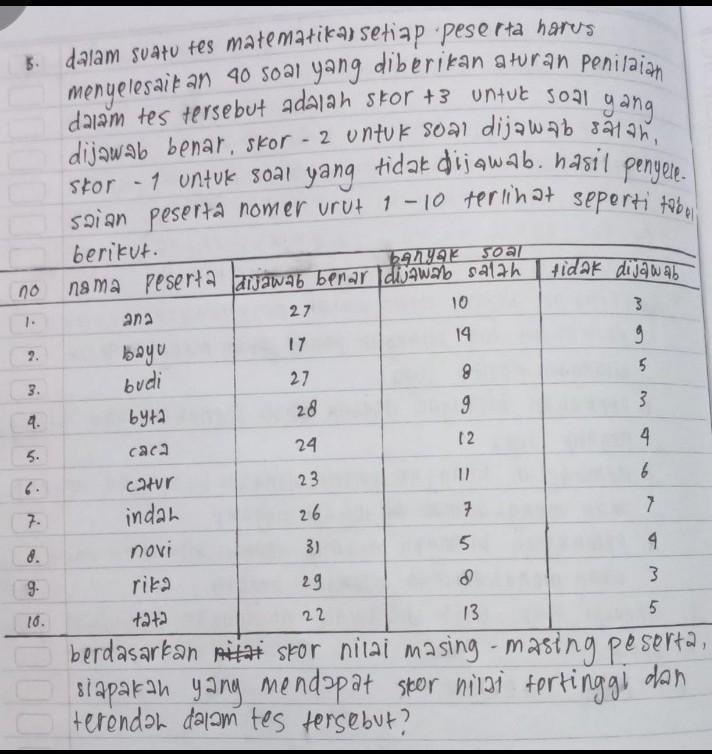 5. dalam suatu tes matematika, setiap peserta harus
menyelesaikan 40 soal yang diberikan aturan penilaian
dalam tes tersebut adalah skor +3 untuk soal yang
dijawab benar, skor -2 untuk soal dijawab salah,
skor -1 untuk soal yang tidak dijawab. hasil penyele-
saian peserta nomer urut 1-10 terlihat seperti tabel
berikut.
banyak soal
no nama peserta dijawab benar dijawab salah tidak dijawab
1. ana 27 10 3
2. bayu 17 14 9
3. budi 27 8 5
4. byta 28 9 3
5. caca 24 12 4
6. catur 23 11 6
7. indah 26 7 7
8. novi 31 5 4
9. rika 29 8 3
10. tata 22 13 5
berdasarkan nilai skor nilai masing-masing peserta,
siapakah yang mendapat skor nilai tertinggi dan
terendah dalam tes tersebut?